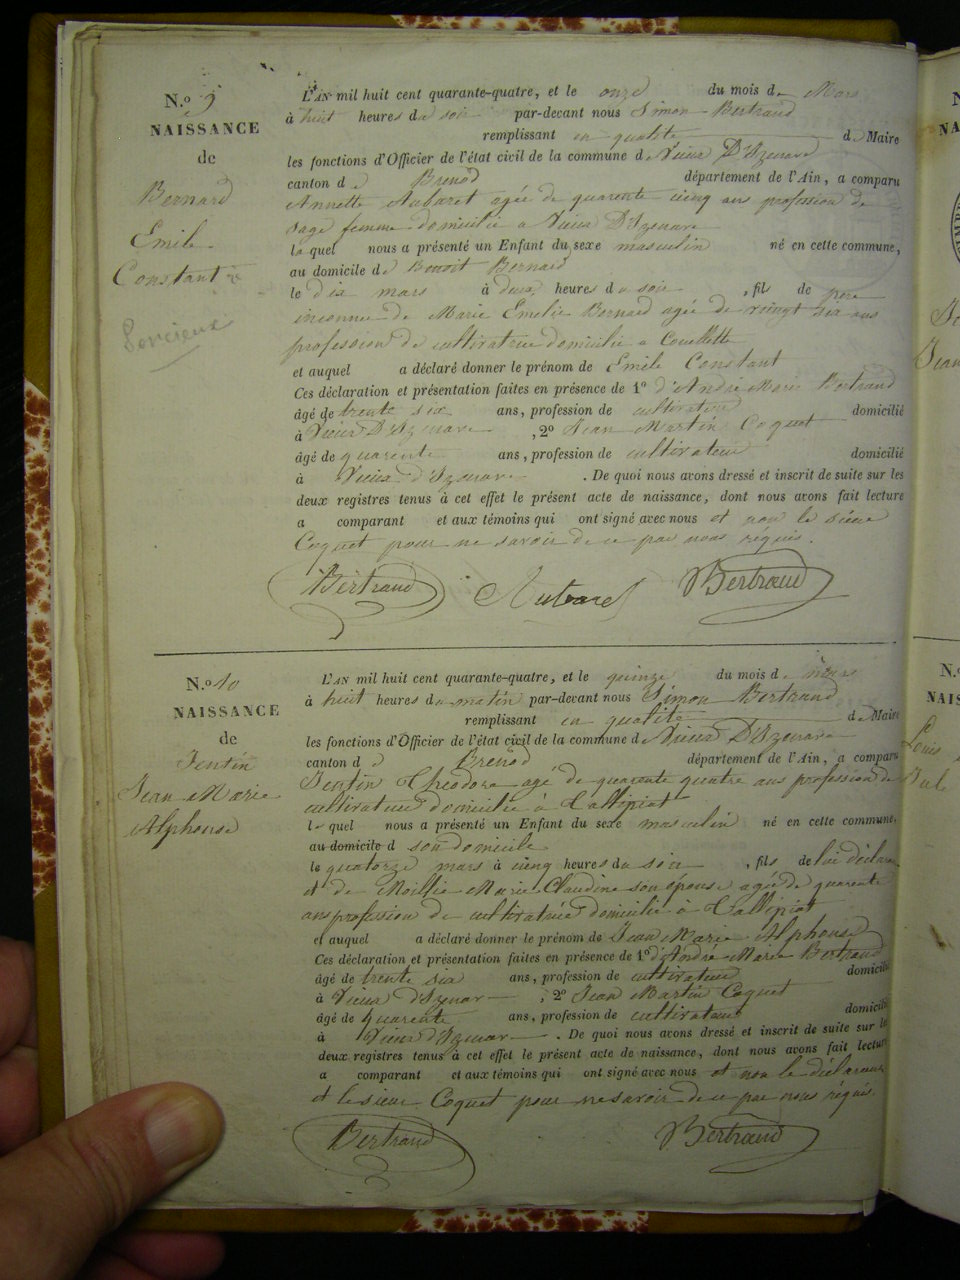 N.o 9
NAISSANCE
de
Bernard
Emile
Constant
L'AN mil huit cent quarante-quatre, et le onze du mois de Mars
à huit heures du soir par-devant nous Simon Bertrand
remplissant en qualité de Maire
les fonctions d'Officier de l'état civil de la commune de Vieux D'Izenave
canton de Brenod département de l'Ain, a comparu
Annette Aubaret agée de quarente cinq ans profession de
sage femme domiciliée a Vieux D'Izenave
laquel nous a présenté un Enfant du sexe masculin né en cette commune,
au domicile de Benoit Bernard
le dix mars à deux heures du soir , fils de père
inconnu de Marie Emelie Bernard agée de vingt six ans
profession de cultivatrice domiciliée a
et auquel a déclaré donner le prénom de Emile Constant
Ces déclaration et présentation faites en présence de 1o d'André Marie Bertrand
âgé de trente six ans, profession de cultivateur domicilié
à Vieux D'Izenave , 2o Jean Martin Coquet
âgé de quarente ans, profession de cultivateur domicilié
à Vieux d'Izenave . De quoi nous avons dressé et inscrit de suite sur les
deux registres tenus à cet effet le présent acte de naissance, dont nous avons fait lecture
a comparant et aux témoins qui ont signé avec nous et non le sieur
Coquet pour ne savoir de ce par nous réquis.
Bertrand Aubaret Bertrand
N.o 10
NAISSANCE
de
Jentin
Jean Marie
Alphonse
L'AN mil huit cent quarante-quatre, et le quinze du mois de mars
à huit heures du matin par-devant nous Simon Bertrand
remplissant en qualité de Maire
les fonctions d'Officier de l'état civil de la commune de Vieux D'Izenave
canton de Brenod département de l'Ain, a comparu
Jentin Théodore agé de quarente quatre ans profession de
cultivateur domicilié à
lequel nous a présenté un Enfant du sexe masculin né en cette commune,
au domicile d son domicile
le quatorze mars à cinq heures du soir , fils de lui déclarant
et de Marie Claudine son épouse agée de quarente
ans profession de cultivatrice domiciliée à
et auquel a déclaré donner le prénom de Jean Marie Alphonse
Ces déclaration et présentation faites en présence de 1o d'André Marie Bertrand
âgé de trente six ans, profession de cultivateur domicilié
à Vieux d'Izenave , 2o Jean Martin Coquet
âgé de quarente ans, profession de cultivateur domicilié
à Vieux d'Izenave . De quoi nous avons dressé et inscrit de suite sur les
deux registres tenus à cet effet le présent acte de naissance, dont nous avons fait lecture
a comparant et aux témoins qui ont signé avec nous et non le déclarant
et le sieur Coquet pour ne savoir de ce par nous réquis.
Bertrand Bertrand